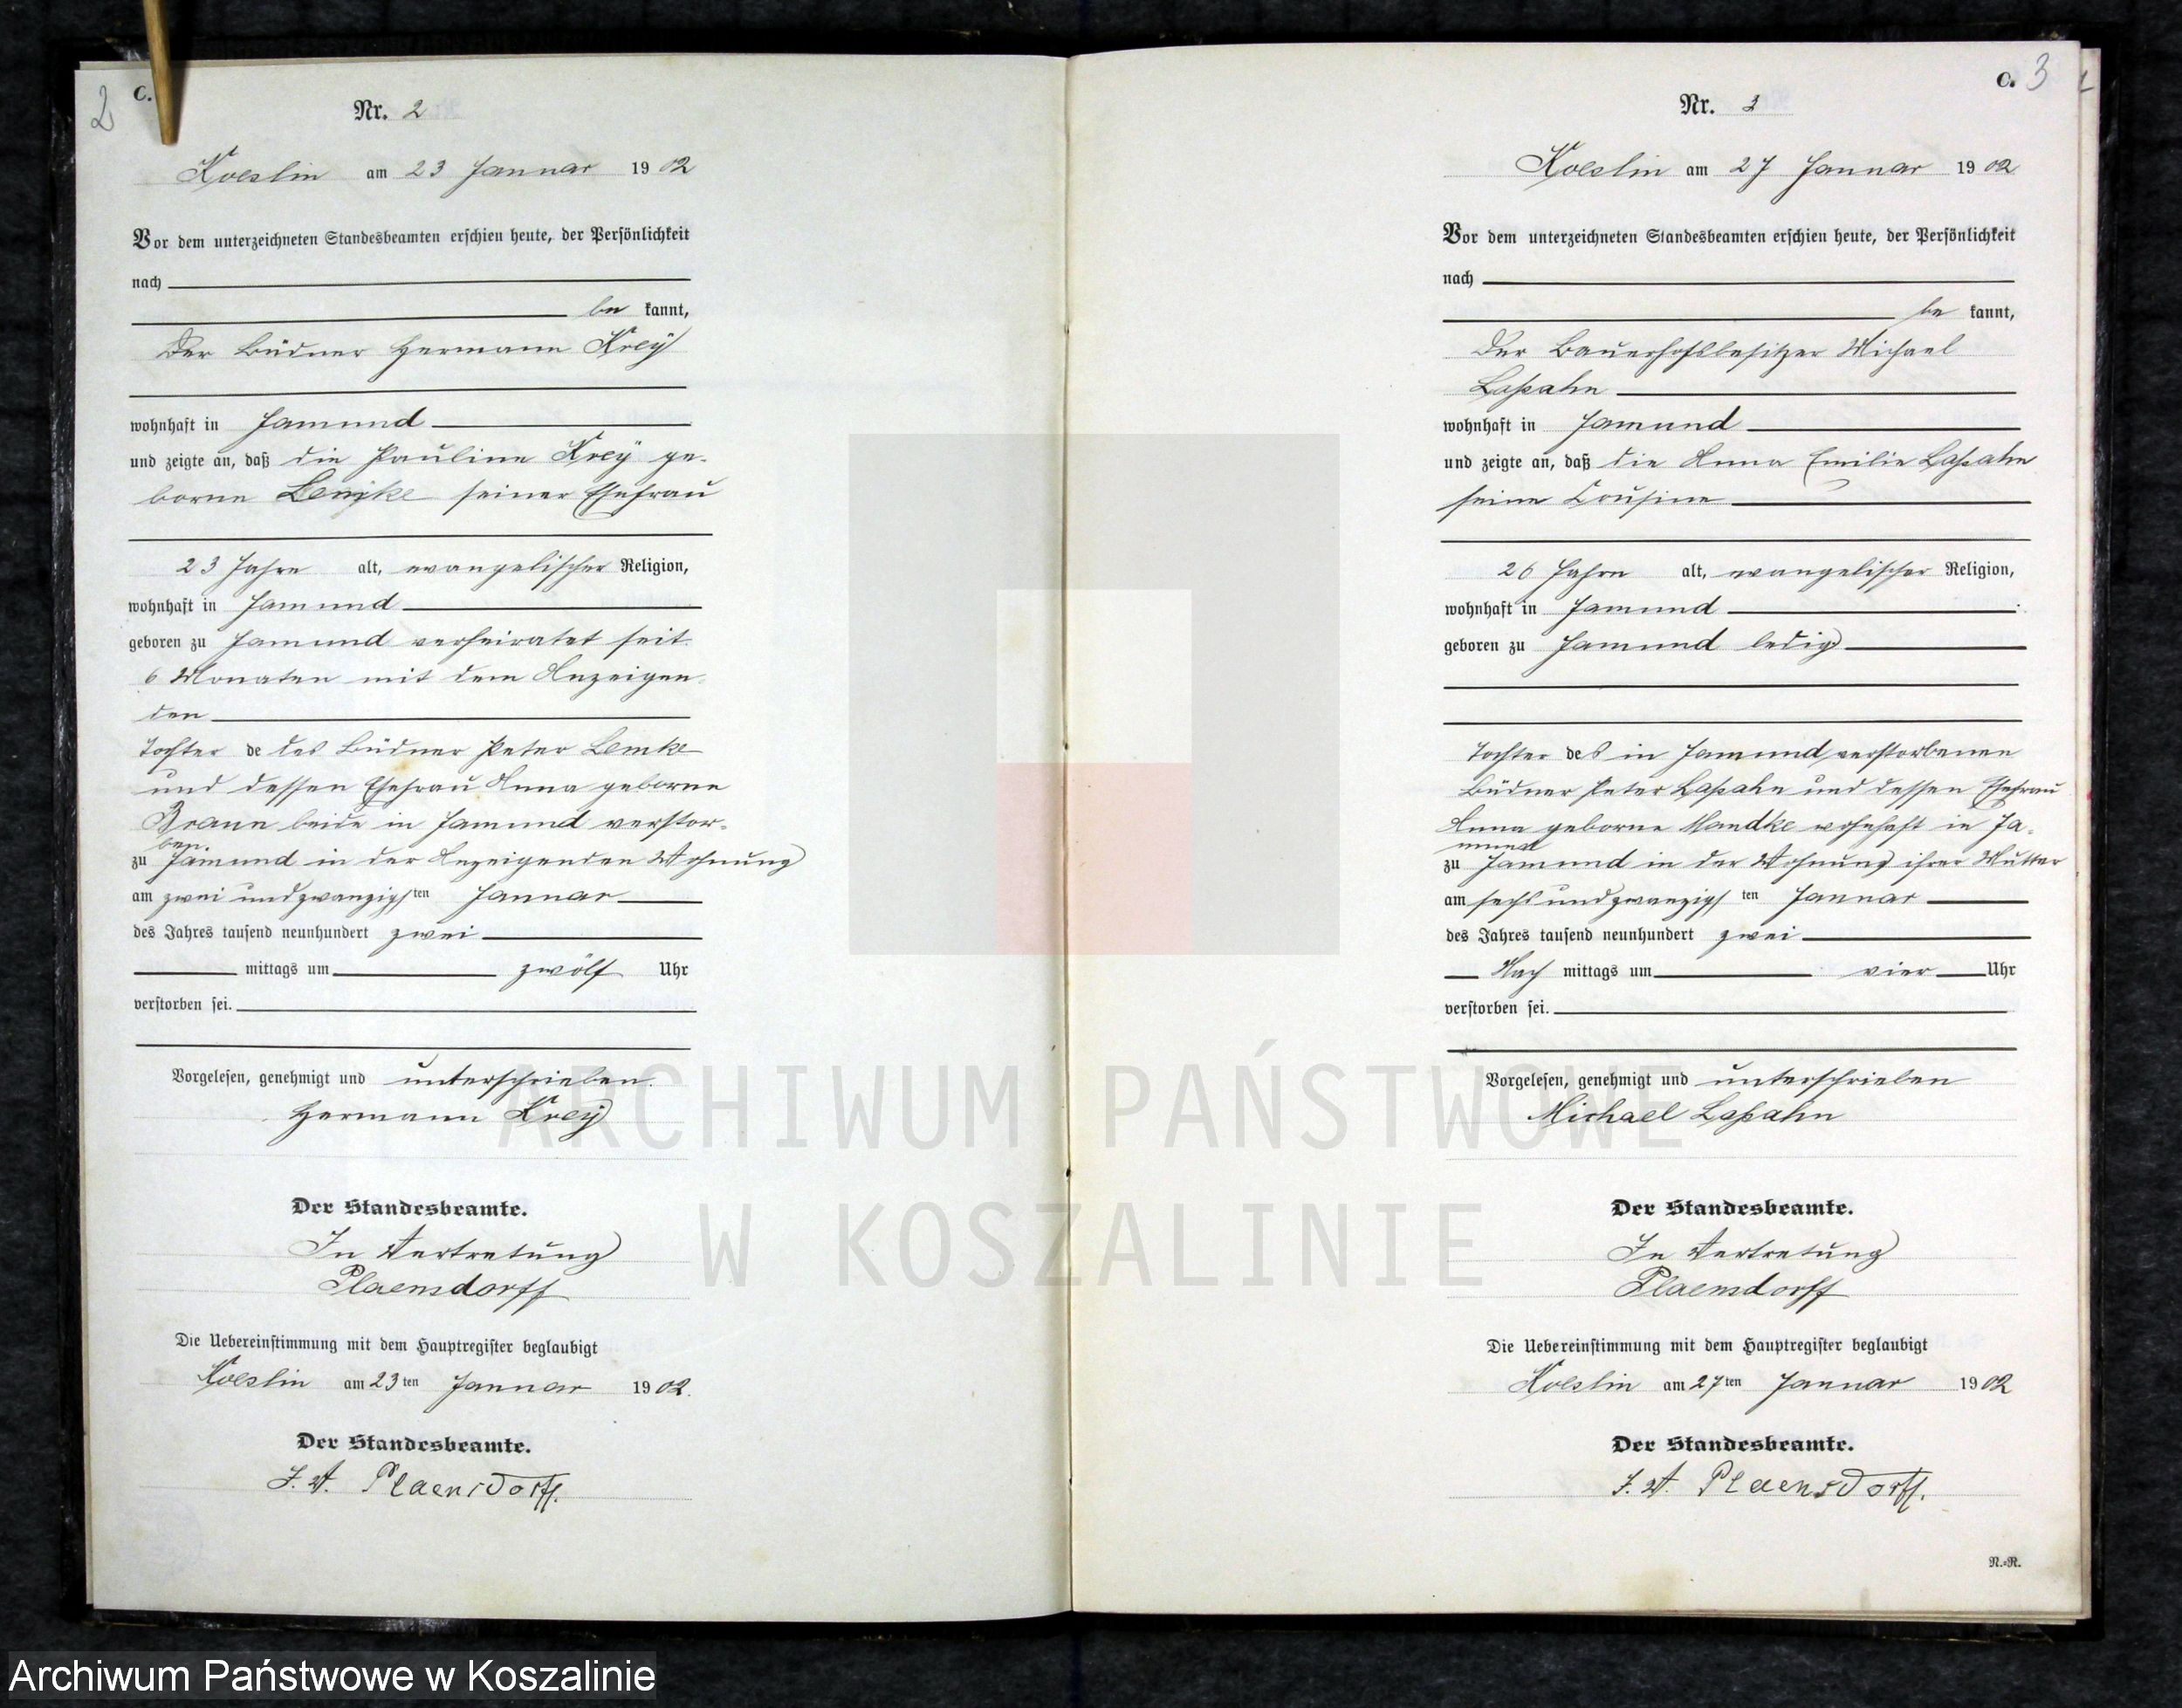 2
C.
Nr. 2
Koeslin am 23 Januar 1902
Vor dem unterzeichneten Standesbeamten erschien heute, der Persönlichkeit
nach
be kannt,
Der Büdner Hermann Kreÿ
wohnhaft in Jamund
und zeigte an, daß die Pauline Kreÿ ge-
borne Lemke seiner Ehefrau
23 Jahre alt, evangelischer Religion,
wohnhaft in Jamund
geboren zu Jamund verheiratet seit
6 Monaten mit dem Anzeigen-
den
Tochter de des Büdner Peter Lemke
und dessen Ehefrau Anna geborne
Braun beide in Jamund verstor-
ben.
zu Jamund in der Anzeigenden Wohnung
am zwei undzwanzigsten Januar
des Jahres tausend neunhundert zwei
mittags um zwölf Uhr
verstorben sei.
Vorgelesen, genehmigt und unterschrieben.
Hermann Kreÿ
Der Standesbeamte.
In Vertretung
Plaensdorff
Die Uebereinstimmung mit dem Hauptregister beglaubigt
Koeslin am 23ten Januar 1902.
Der Standesbeamte.
J. V. Plaensdorff.
C. 3
Nr. 3
Koeslin am 27 Januar 1902
Vor dem unterzeichneten Standesbeamten erschien heute, der Persönlichkeit
nach
be kannt,
Der Bauerhofsbesitzer Michael
Laßahn
wohnhaft in Jamund
und zeigte an, daß die Anna Emilie Laßahn
seine Cousine
26 Jahre alt, evangelischer Religion,
wohnhaft in Jamund
geboren zu Jamund ledig
Tochter des in Jamund verstorbenen
Büdner Peter Laßahn und dessen Ehefrau
Anna geborne Mandke wohnhaft in Ja-
mund
zu Jamund in der Wohnung ihrer Mutter
am sechs undzwanzigsten Januar
des Jahres tausend neunhundert zwei
Nach mittags um vier Uhr
verstorben sei.
Vorgelesen, genehmigt und unterschrieben
Michael Laßahn
Der Standesbeamte.
In Vertretung
Plaensdorff
Die Uebereinstimmung mit dem Hauptregister beglaubigt
Koeslin am 27ten Januar 1902
Der Standesbeamte.
J. V. Plaensdorff.
N.=R.
ARCHIWUM PAŃSTWOWE
W KOSZALINIE
Archiwum Państwowe w Koszalinie